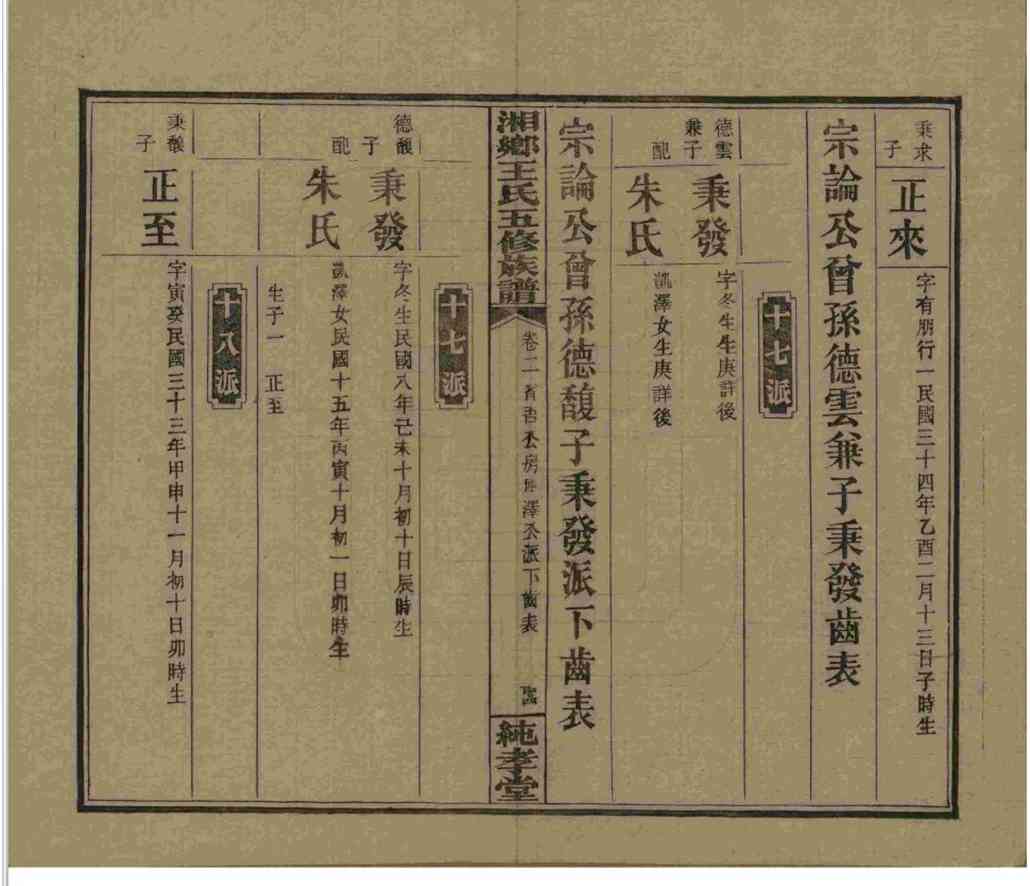 秉求子
正來
字有朋行一民國三十四年乙酉二月十三日子時生
宗論公曾孫德雲兼子秉發齒表
十七派
德雲兼子
秉發
字冬生生庚詳後
配
朱氏
凱澤女生庚詳後
宗論公曾孫德馥子秉發派下齒表
湘鄉王氏五修族譜
卷二
公房
澤公派下齒表
純孝堂
十七派
德馥子
秉發
字冬生民國八年己未十月初十日辰時生
配
朱氏
凱澤女民國十五年丙寅十月初一日卯時生
生子一 正至
十八派
子
正至
字寅癸民國三十三年甲申十一月初十日卯時生